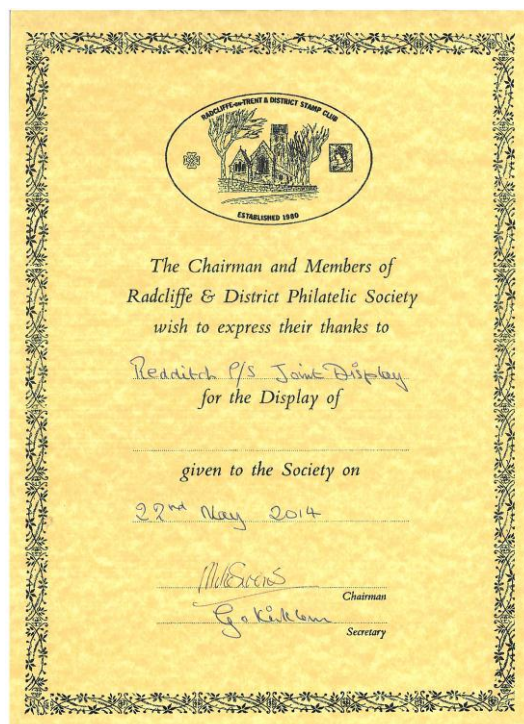 RADCLIFFE-on-TRENT & DISTRICT STAMP CLUB
ESTABLISHED 1980
The Chairman and Members of
Radcliffe & District Philatelic Society
wish to express their thanks to
Redditch P/S Joint Display
for the Display of
given to the Society on
22nd May 2014
Chairman
Secretary